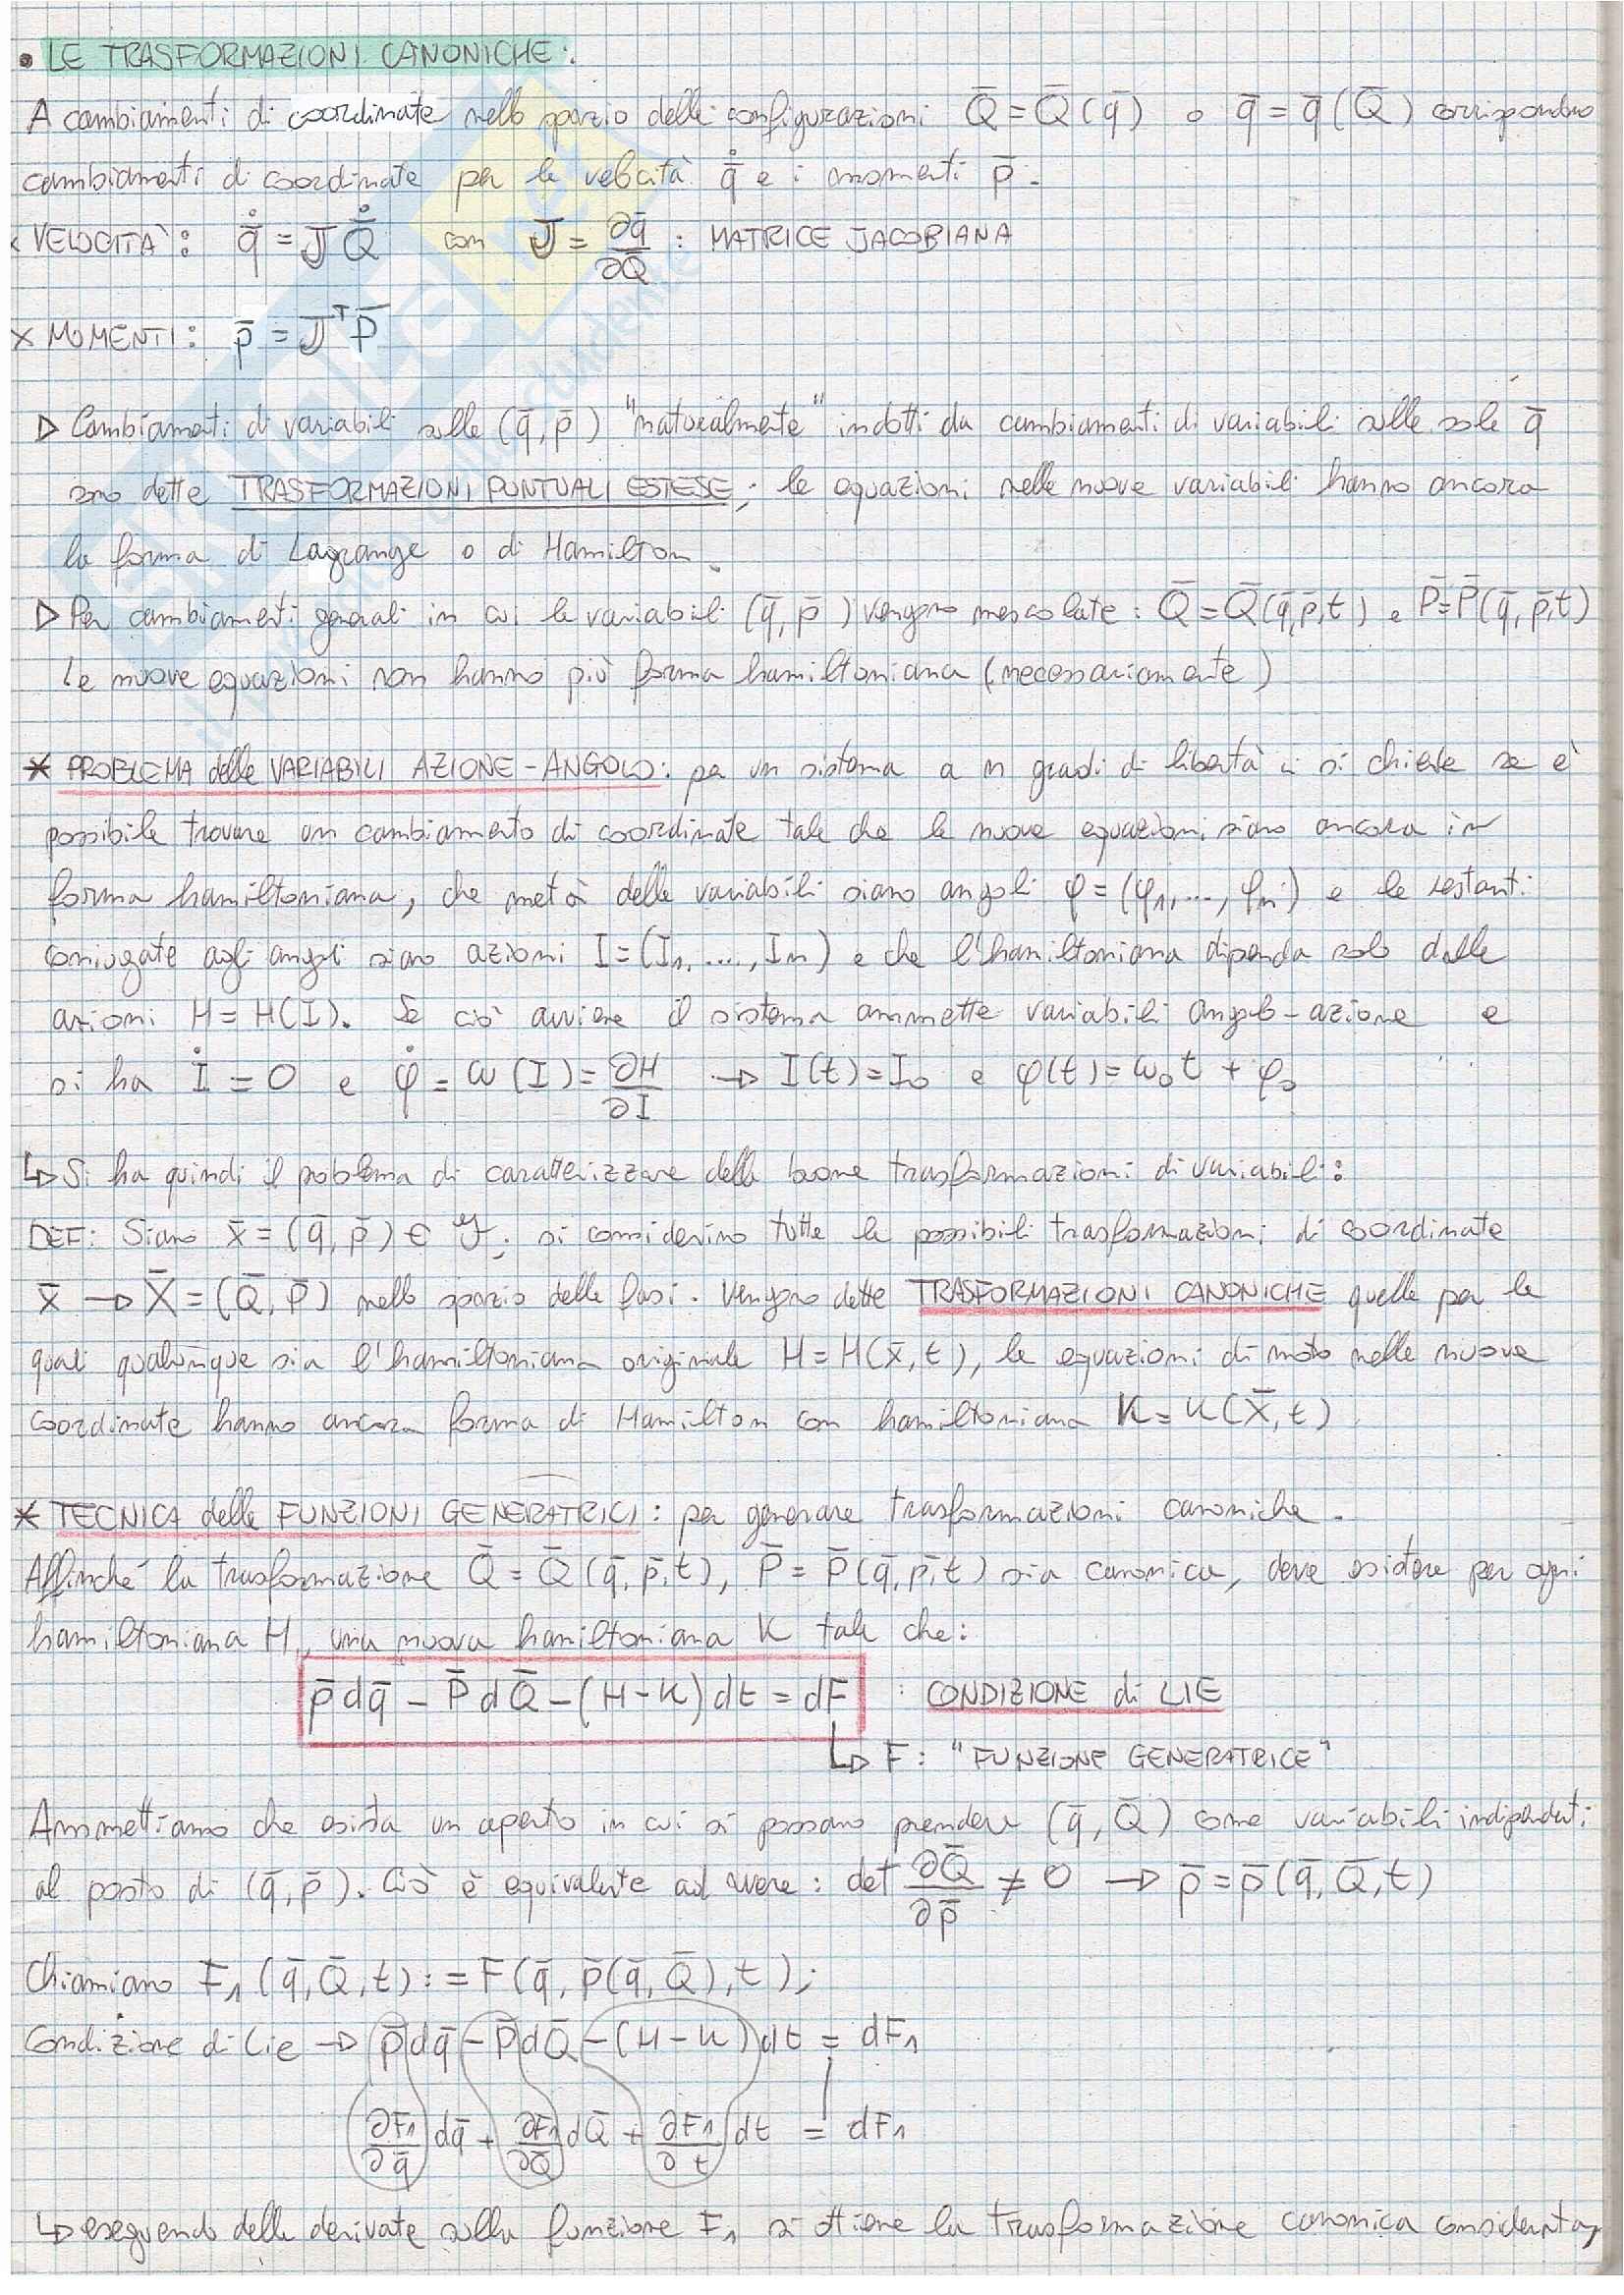 • LE TRASFORMAZIONI CANONICHE:
A cambiamenti di coordinate nello spazio delle configurazioni Q̄ = Q̄(q̄) o q̄ = q̄(Q̄) corrispondono
cambiamenti di coordinate per le velocità q̄̇ e i momenti p̄.
× VELOCITÀ: q̄̇ = J Q̄̇ con J = ∂q̄/∂Q̄ : MATRICE JACOBIANA
× MOMENTI: p̄ = Jᵀ P̄
▷ Cambiamenti di variabili sulle (q̄, p̄) "naturalmente" indotti da cambiamenti di variabili sulle sole q̄
sono dette TRASFORMAZIONI PUNTUALI ESTESE; le equazioni nelle nuove variabili hanno ancora
la forma di Lagrange o di Hamilton.
▷ Per cambiamenti generali in cui le variabili (q̄, p̄) vengono mescolate: Q̄ = Q̄(q̄,p̄,t) e P̄ = P̄(q̄,p̄,t)
le nuove equazioni non hanno più forma hamiltoniana (necessariamente)
* PROBLEMA delle VARIABILI AZIONE-ANGOLO: per un sistema a n gradi di libertà ci si chiede se è
possibile trovare un cambiamento di coordinate tale che le nuove equazioni siano ancora in
forma hamiltoniana, che metà delle variabili siano angoli φ = (φ₁,..., φₙ) e le restanti
coniugate agli angoli siano azioni I = (I₁,..., Iₙ) e che l'hamiltoniana dipenda solo dalle
azioni H = H(I). Se ciò avviene il sistema ammette variabili angolo-azione e
si ha İ = 0 e φ̇ = ω(I) = ∂H/∂I → I(t) = I₀ e φ(t) = ω₀t + φ₀
↳ Si ha quindi il problema di caratterizzare delle buone trasformazioni di variabili:
DEF: Siano x̄ = (q̄, p̄) ∈ 𝒴; si considerino tutte le possibili trasformazioni di coordinate
x̄ → X̄ = (Q̄, P̄) nello spazio delle fasi. Vengono dette TRASFORMAZIONI CANONICHE quelle per le
quali qualunque sia l'hamiltoniana originale H = H(x̄, t), le equazioni di moto nelle nuove
coordinate hanno ancora forma di Hamilton con hamiltoniana K = K(X̄, t)
* TECNICA delle FUNZIONI GENERATRICI: per generare trasformazioni canoniche.
Affinché la trasformazione Q̄ = Q̄(q̄,p̄,t), P̄ = P̄(q̄,p̄,t) sia canonica, deve esistere per ogni
hamiltoniana H, una nuova hamiltoniana K tale che:
p̄dq̄ - P̄dQ̄ - (H-K)dt = dF : CONDIZIONE di LIE
↳ F: "FUNZIONE GENERATRICE"
Ammettiamo che esista un aperto in cui si possano prendere (q̄, Q̄) come variabili indipendenti
al posto di (q̄, p̄). Ciò è equivalente ad avere: det ∂Q̄/∂p̄ ≠ 0 → p̄ = p̄(q̄, Q̄, t)
Chiamiamo F₁(q̄, Q̄, t) := F(q̄, p̄(q̄, Q̄), t);
Condizione di Lie → p̄dq̄ - P̄dQ̄ - (H-K)dt = dF₁
∂F₁/∂q̄ dq̄ + ∂F₁/∂Q̄ dQ̄ + ∂F₁/∂t dt = dF₁
↳ eseguendo delle derivate sulla funzione F₁ si ottiene la trasformazione canonica considerata,